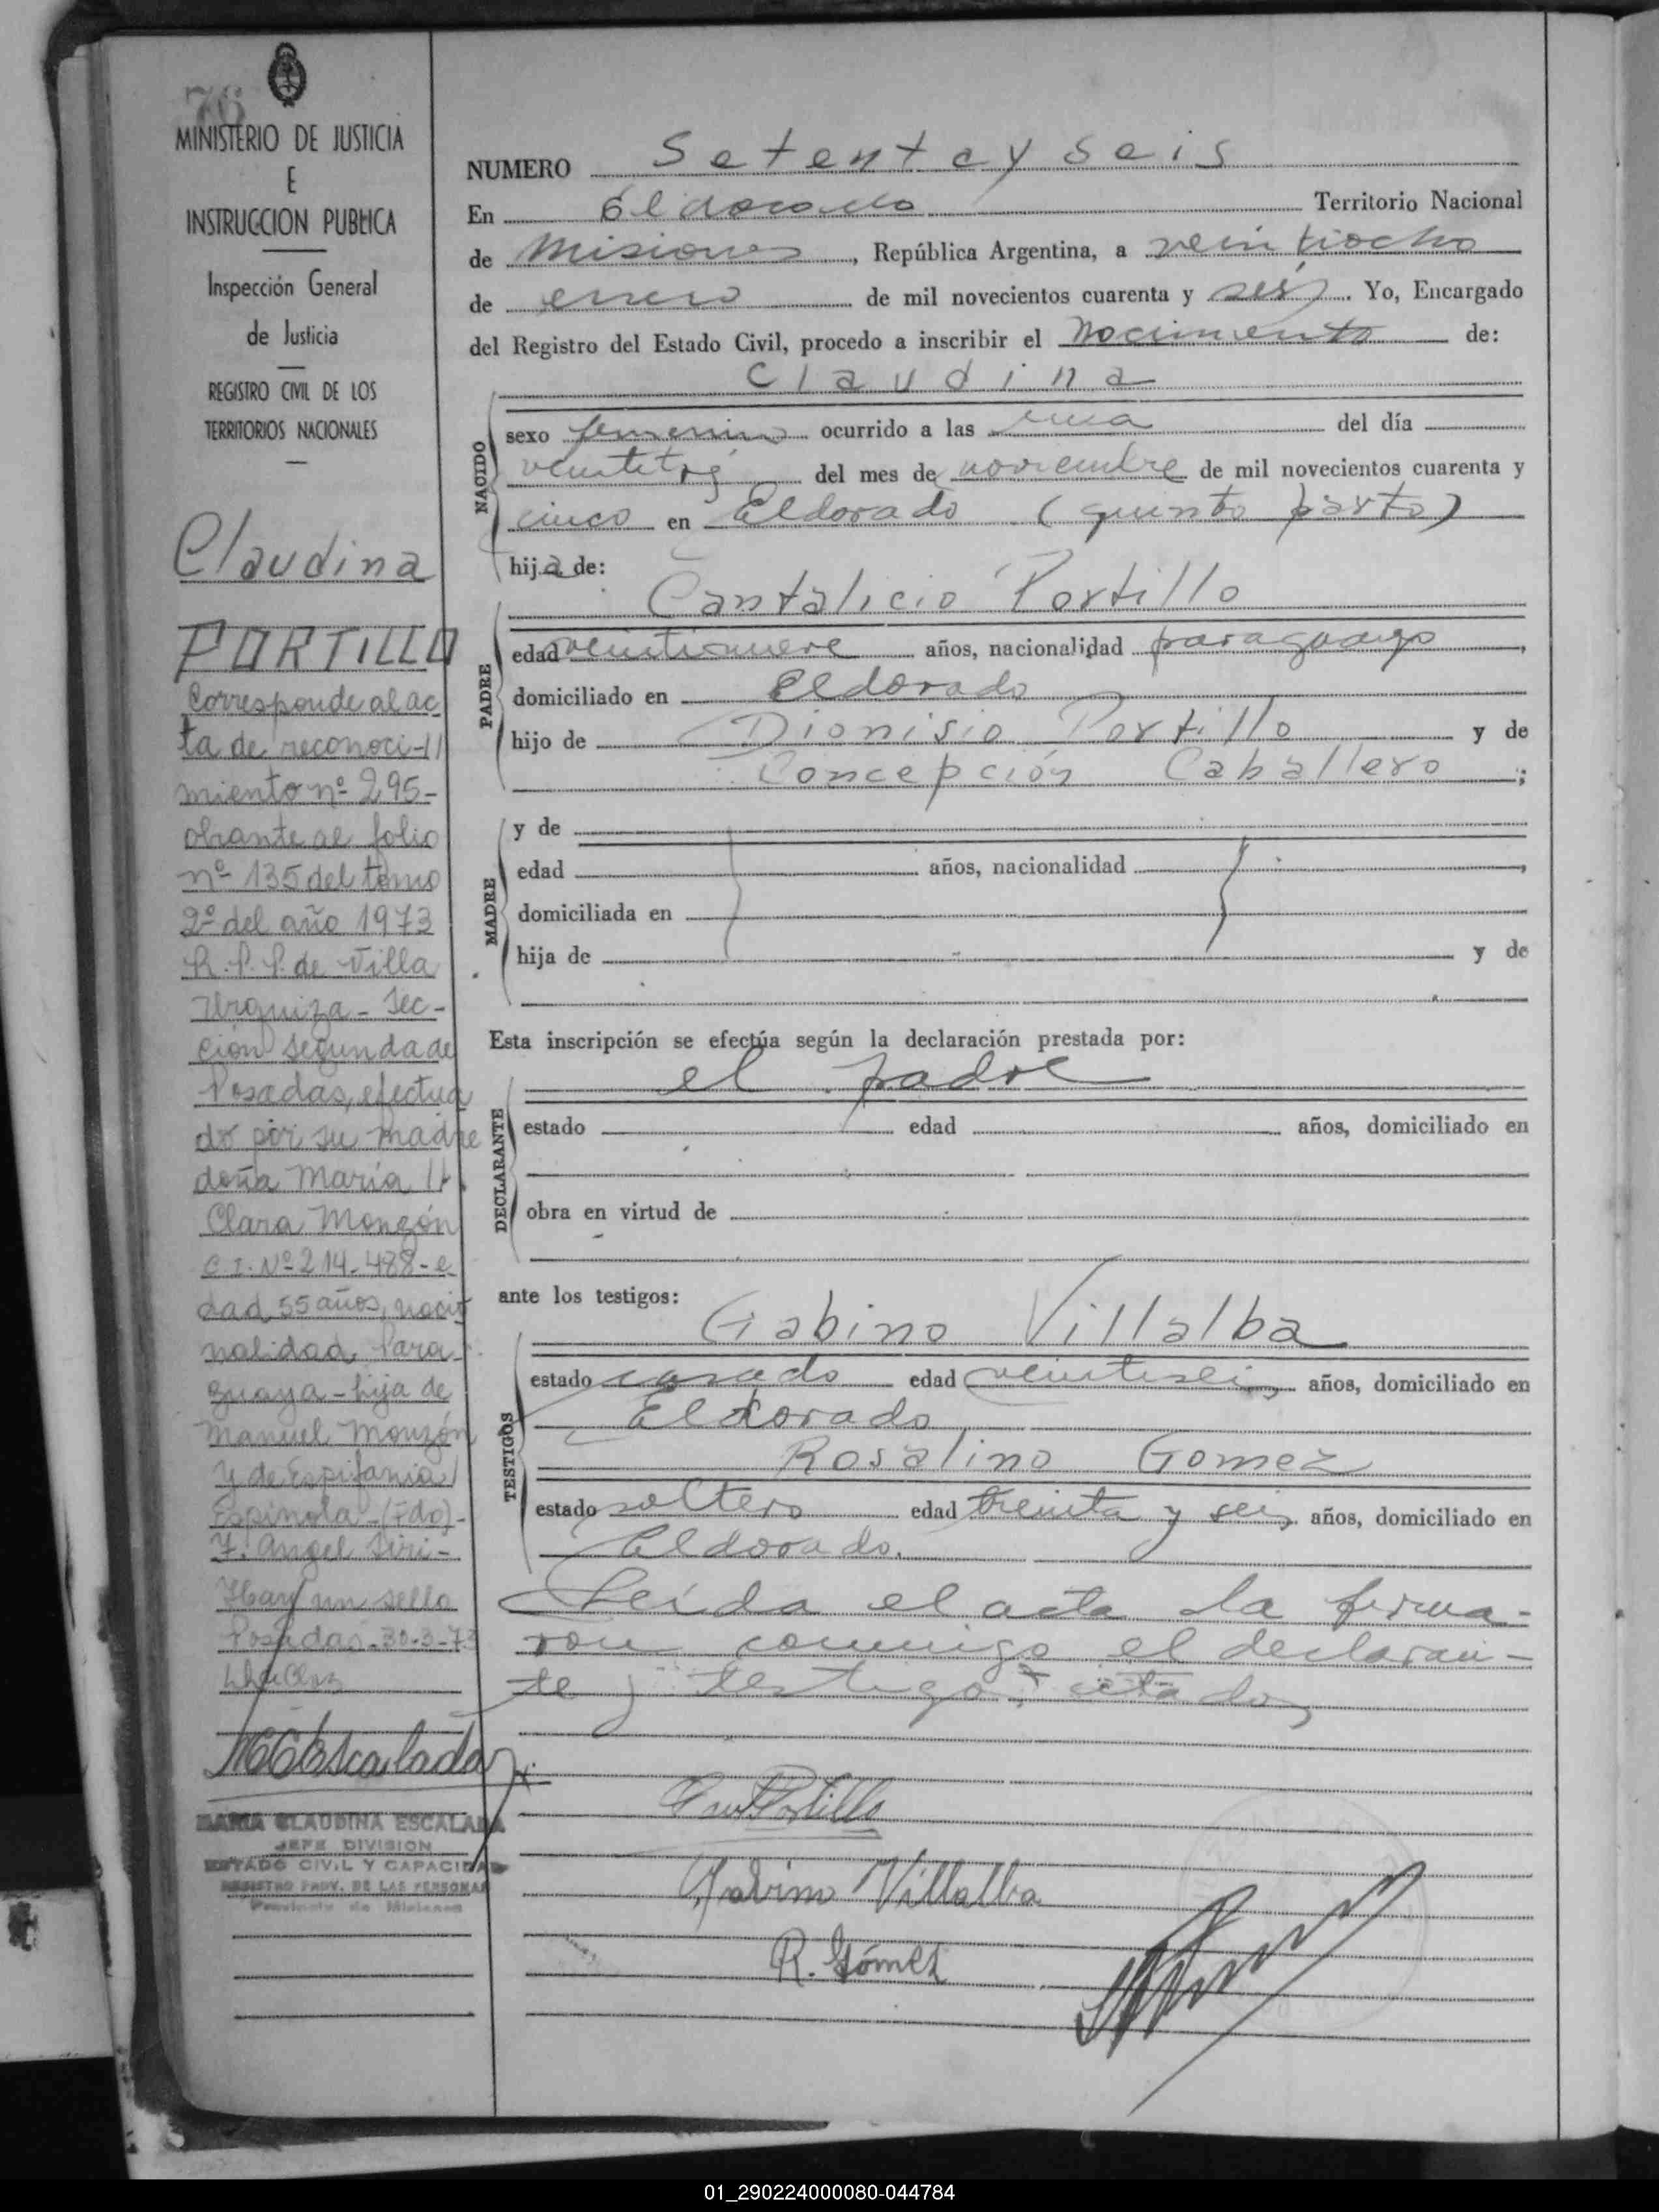 76
MINISTERIO DE JUSTICIA
E
INSTRUCCION PUBLICA
Inspección General
de Justicia
REGISTRO CIVIL DE LOS
TERRITORIOS NACIONALES
Claudina
PORTILLO
Corresponde al ac
ta de reconoci-//
miento nº 295-
obrante al folio
nº 135 del tomo
2º del año 1973
R.P.P. de Villa
Urquiza - Sec-
ción Segunda de
Posadas, efectua
do por su madre
doña María //
Clara Monzón
C.I. Nº 214.488 - e
dad 55 años, nacio
nalidad Para-
guaya - hija de
Manuel Monzón
y de Epifania
Espinola - (Fdo) -
F. Angel Siri -
Hay un sello
Posadas - 30-3-73
MCEscalada
MARIA CLAUDINA ESCALADA
JEFE DIVISION
ESTADO CIVIL Y CAPACIDAD
REGISTRO PROV. DE LAS PERSONAS
Provincia de Misiones
NUMERO Setenta y seis
En Eldorado Territorio Nacional
de Misiones, República Argentina, a veintiocho
de enero de mil novecientos cuarenta y seis. Yo, Encargado
del Registro del Estado Civil, procedo a inscribir el Nacimiento de:
Claudina
NACIDO
sexo femenino ocurrido a las una del día
veintitrés del mes de noviembre de mil novecientos cuarenta y
cinco en Eldorado (quinto parto)
hija de:
Cantalicio Portillo
PADRE
edad veintinueve años, nacionalidad paraguayo,
domiciliado en Eldorado
hijo de Dionisio Portillo y de
Concepción Caballero;
MADRE
y de
edad años, nacionalidad,
domiciliada en
hija de y de
Esta inscripción se efectúa según la declaración prestada por:
el padre
DECLARANTE
estado edad años, domiciliado en
obra en virtud de
ante los testigos:
Gabino Villalba
TESTIGOS
estado casado edad veintiseis años, domiciliado en
Eldorado
Rosalino Gomez
estado soltero edad treinta y seis años, domiciliado en
Eldorado.
Leída el acta la firma-
ron conmigo el declaran-
te y testigos citados
Portillo
Gabino Villalba
R. Gómez
01_290224000080-044784